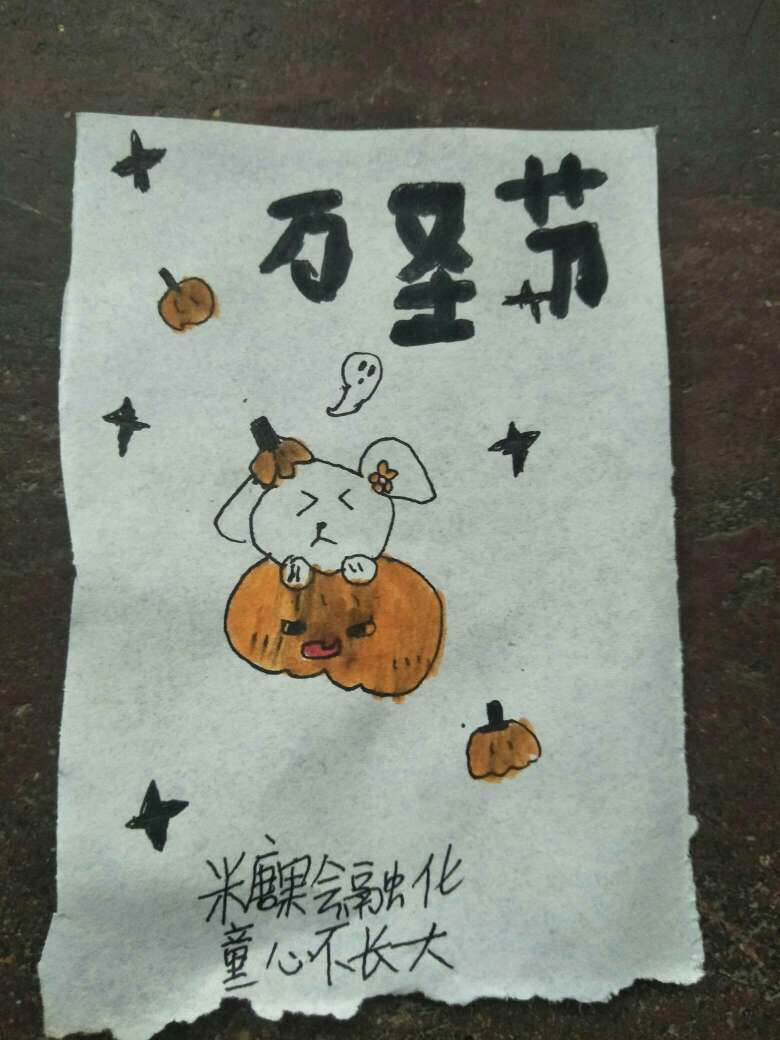 万圣节
糖果会融化
童心不长大